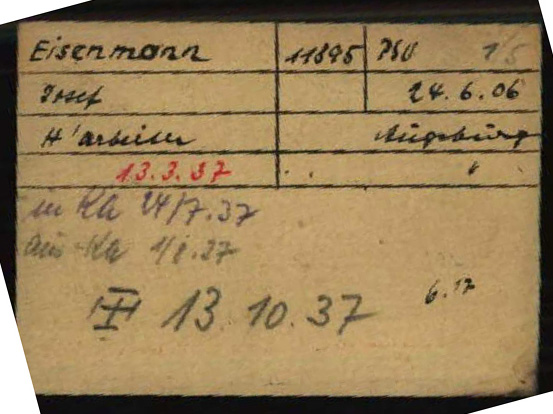 Eisenmann 11895 PSV 1/5
Josef 24.6.06
H'arbeiter Augsburg
13.3.37
in Ka 24/7.37
aus Ka 1/8.37
III 13.10.37
6.17